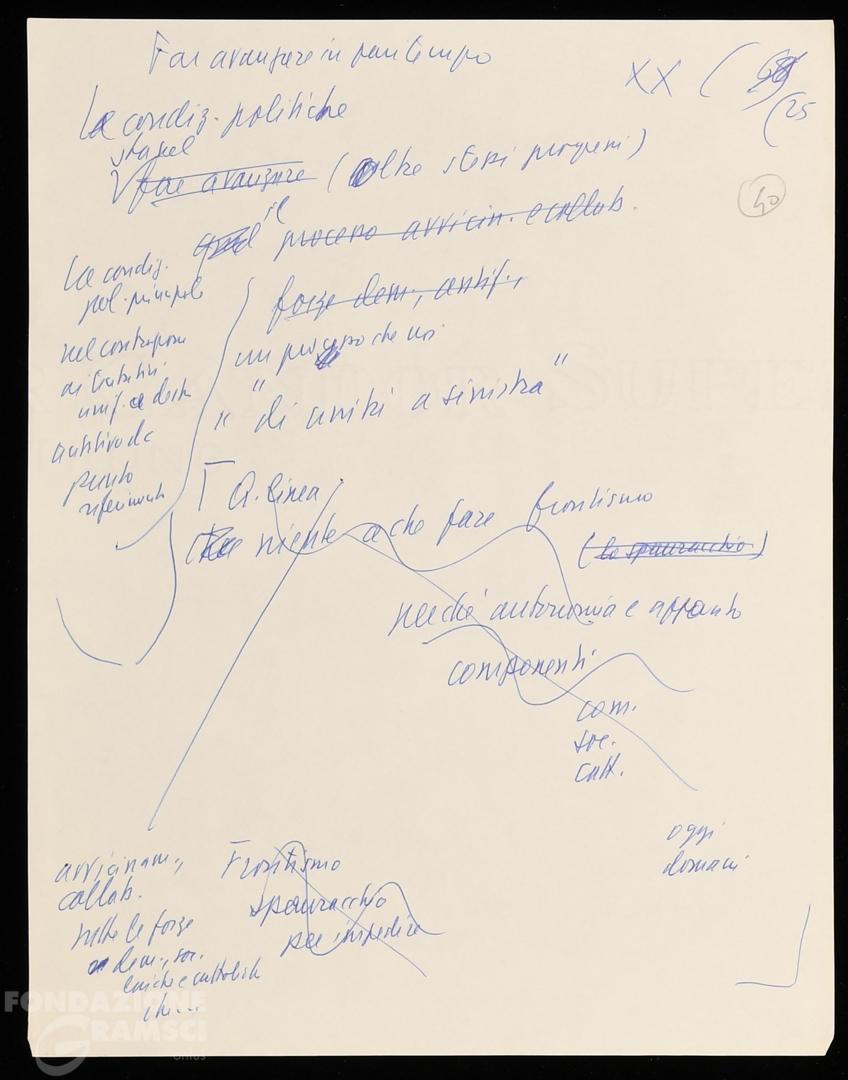 Far avanzare in pari tempo
XX (
(25
Le condiz. politiche
far avanzare (oltre stessi progressi)
40
il processo avvicin. e collab.
forze dem., antif.,
La condiz.
pol. principale
nel contrapporre
ai tentativi
a destra
punto
riferimento
un processo che noi
" "di unità a sinistra"
Q. linea
niente a che fare frontismo
(lo spauracchio)
perché autonomia e apporto
componenti
com.
soc.
catt.
oggi
domani
avvicinam.,
collab.
tutte le forze
dem., soc.
laiche e cattoliche
Frontismo
spauracchio
per impedire
FONDAZIONE
GRAMSCI
onlus